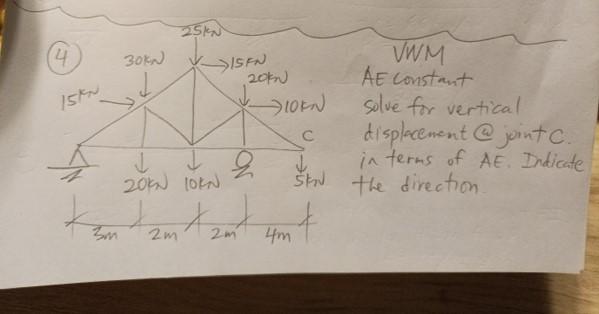 4
25KN
15KN
30KN
20KN
15KN
10KN
C
20KN
10KN
5KN
3m
2m
2m
4m
VWM
AE Constant
solve for vertical
displacement @ joint C.
in terms of AE. Indicate
the direction.